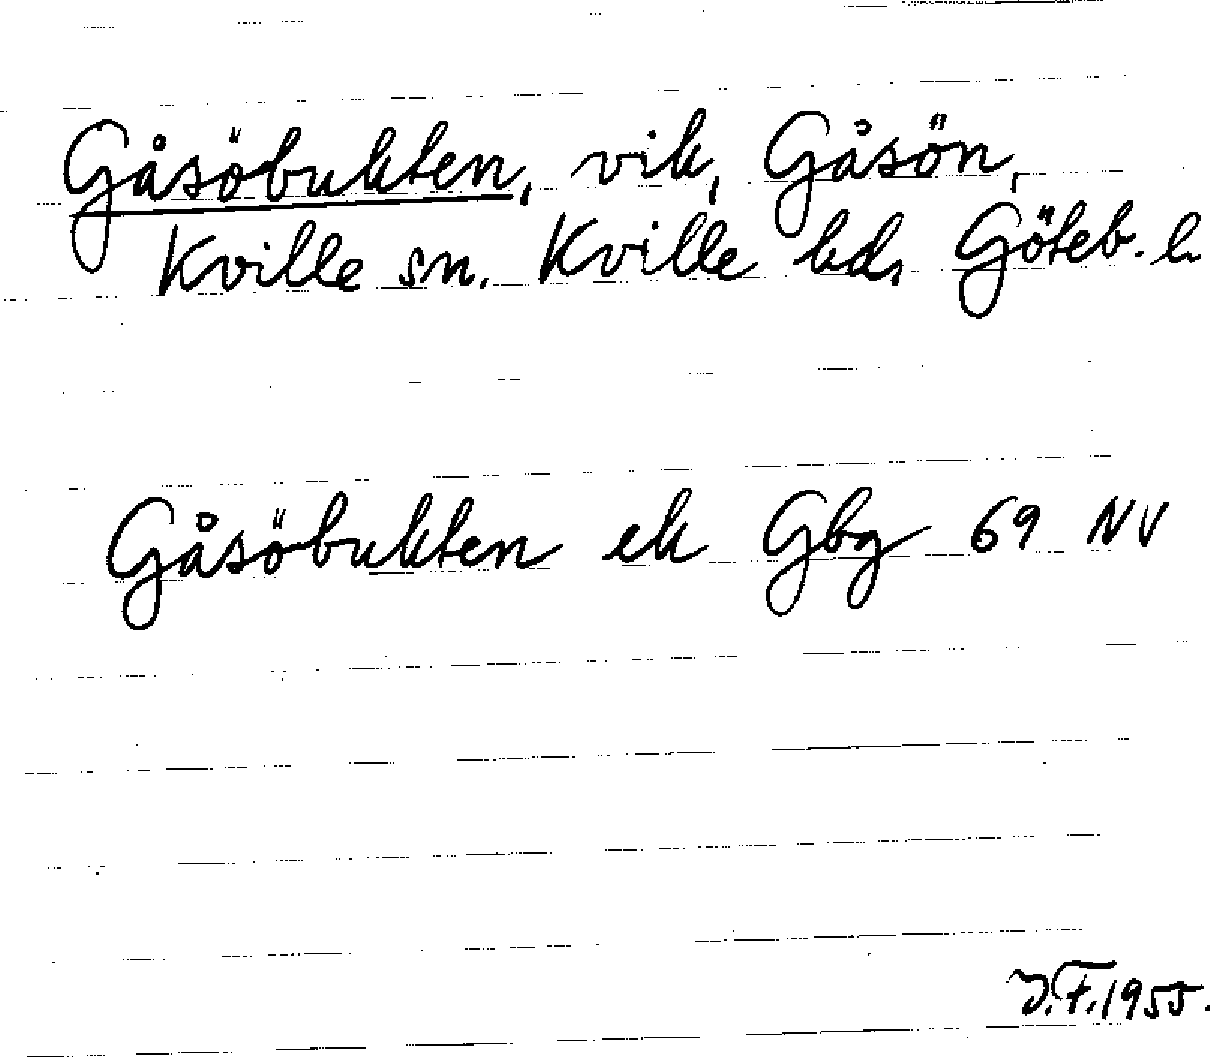 Gåsöbukten, vik, Gåsön,
Kville sn. Kville hd, Göteb. l.
Gåsöbukten ek Gbg 69 NV
J.F. 1955.